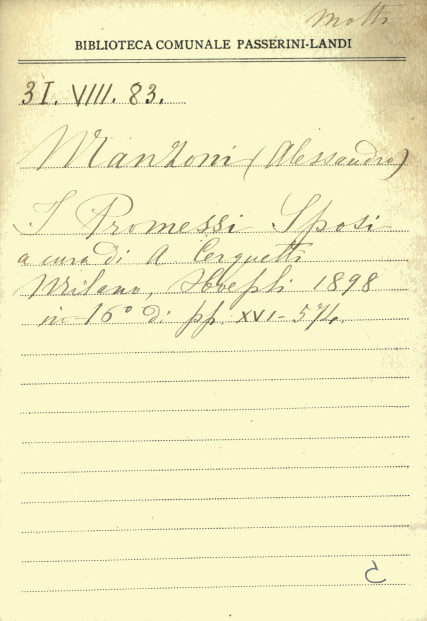 Motti
BIBLIOTECA COMUNALE PASSERINI-LANDI
3I. VIII. 83.
Manzoni (Alessandro)
I Promessi Sposi
a cura di A Cerquetti
Milano, Hoepli 1898
in 16° di pp. XVI-574.